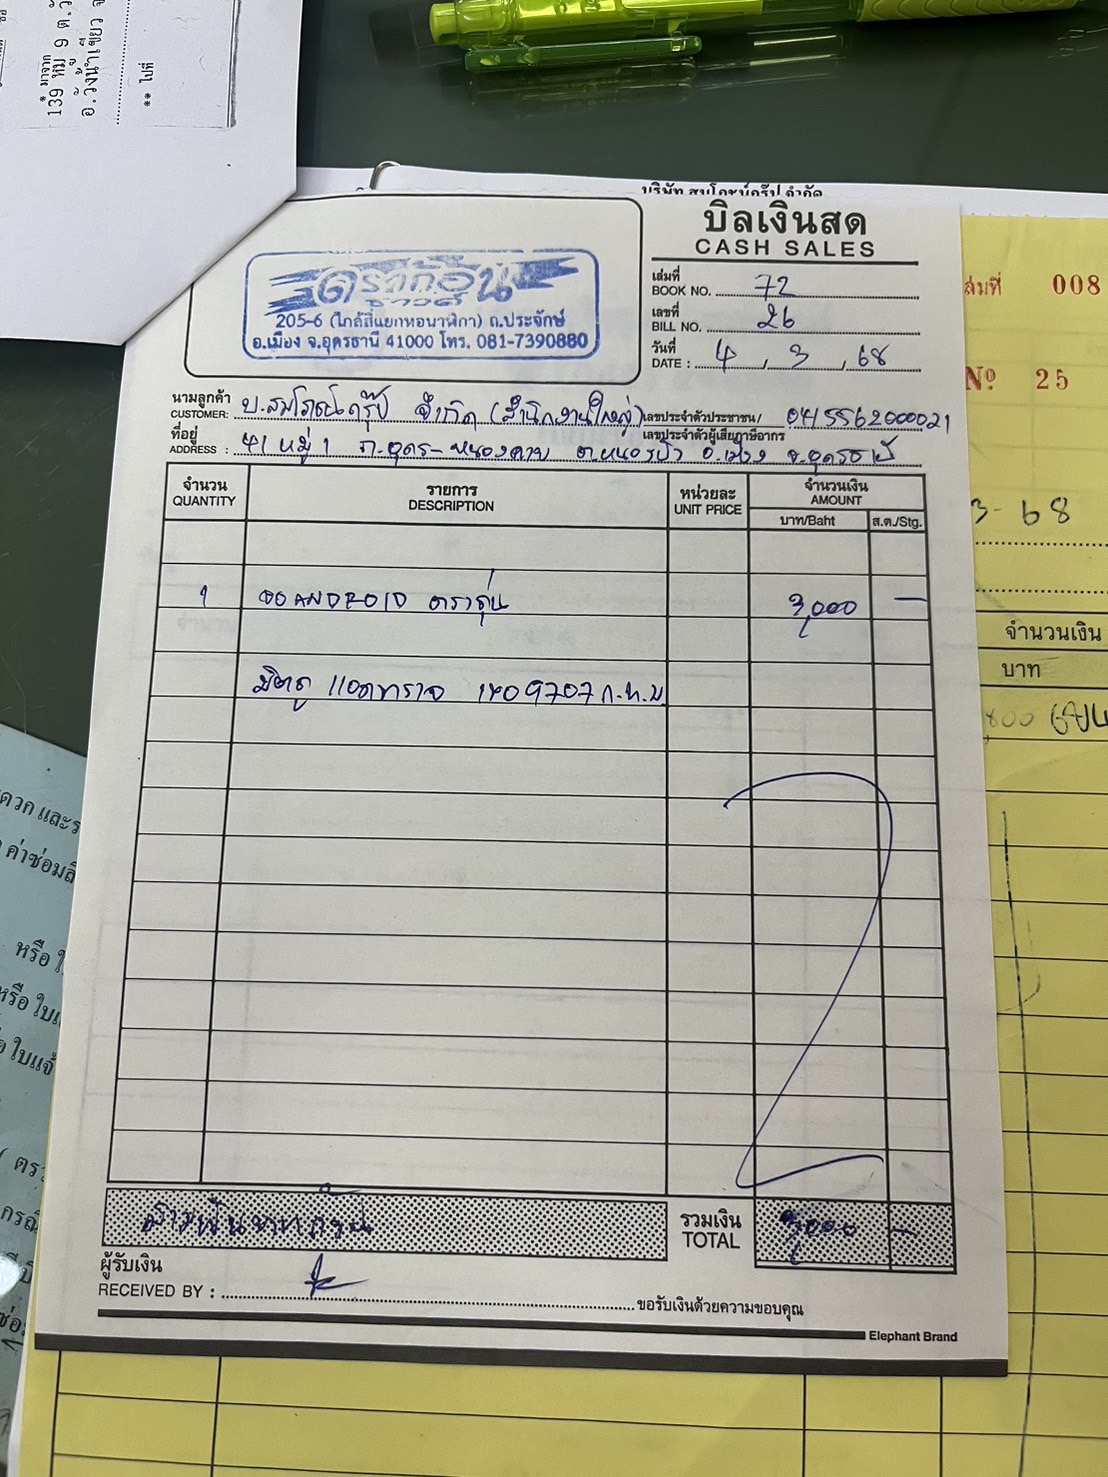 ** มาจาก
139 หมู่ 9 ต.ว
** ไปที่
บริษัท สมโภชน์กรุ๊ป จำกัด
บิลเงินสด
CASH SALES
ดราก้อน
ซาวด์
205-6 (ใกล้สี่แยกหอนาฬิกา) ถ.ประจักษ์
อ.เมือง จ.อุดรธานี 41000 โทร. 081-7390880
เล่มที่
BOOK NO. 72
เลขที่
BILL NO. 26
วันที่
DATE : 4 / 3 / 68
นามลูกค้า บ.สมโภชน์กรุ๊ป จำกัด (สำนักงานใหญ่) เลขประจำตัวประชาชน/ 0415562000021
CUSTOMER: เลขประจำตัวผู้เสียภาษีอากร
ที่อยู่
ADDRESS : 41 หมู่ 1 ถ.อุดร-หนองคาย ต.หนองบัว อ.เมือง จ.อุดรธานี
จำนวน รายการ หน่วยละ จำนวนเงิน
QUANTITY DESCRIPTION UNIT PRICE AMOUNT
บาท/Baht ส.ต./Stg.
1 จอ ANDROID ตรงรุ่น 3,000 —
มิตซู แอททราจ 1ขO9707 ก.ท.ม.
สามพันบาทถ้วน รวมเงิน 3,000 —
TOTAL
ผู้รับเงิน
RECEIVED BY : ขอรับเงินด้วยความขอบคุณ
Elephant Brand
ล่มที่ 008
Nº 25
3-68
จำนวนเงิน
บาท
ดวก และร
ค่าซ่อมสี
หรือ ใ
หรือ ใบแ
ใบแจ้
( ตรว
กรณี